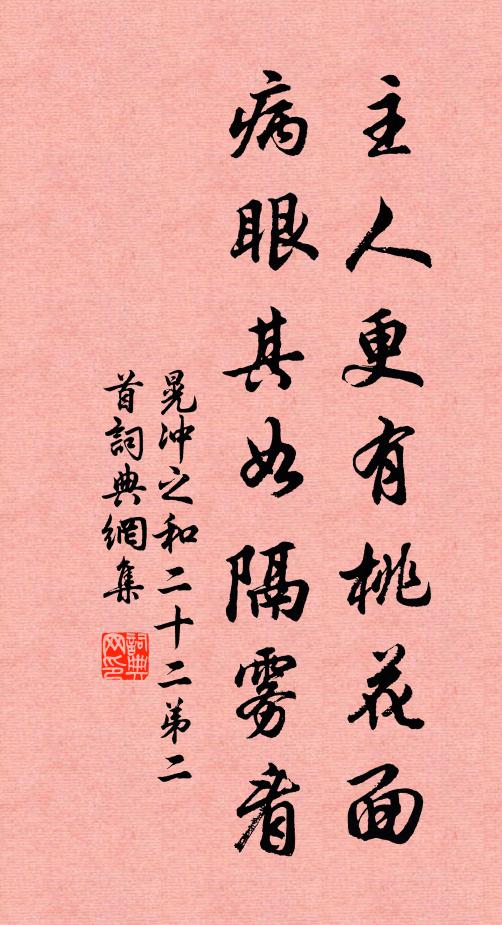 主人更有桃花面
病眼其如隔雾看
晃冲之和二十二弟二
首詞典網集
詞典网印